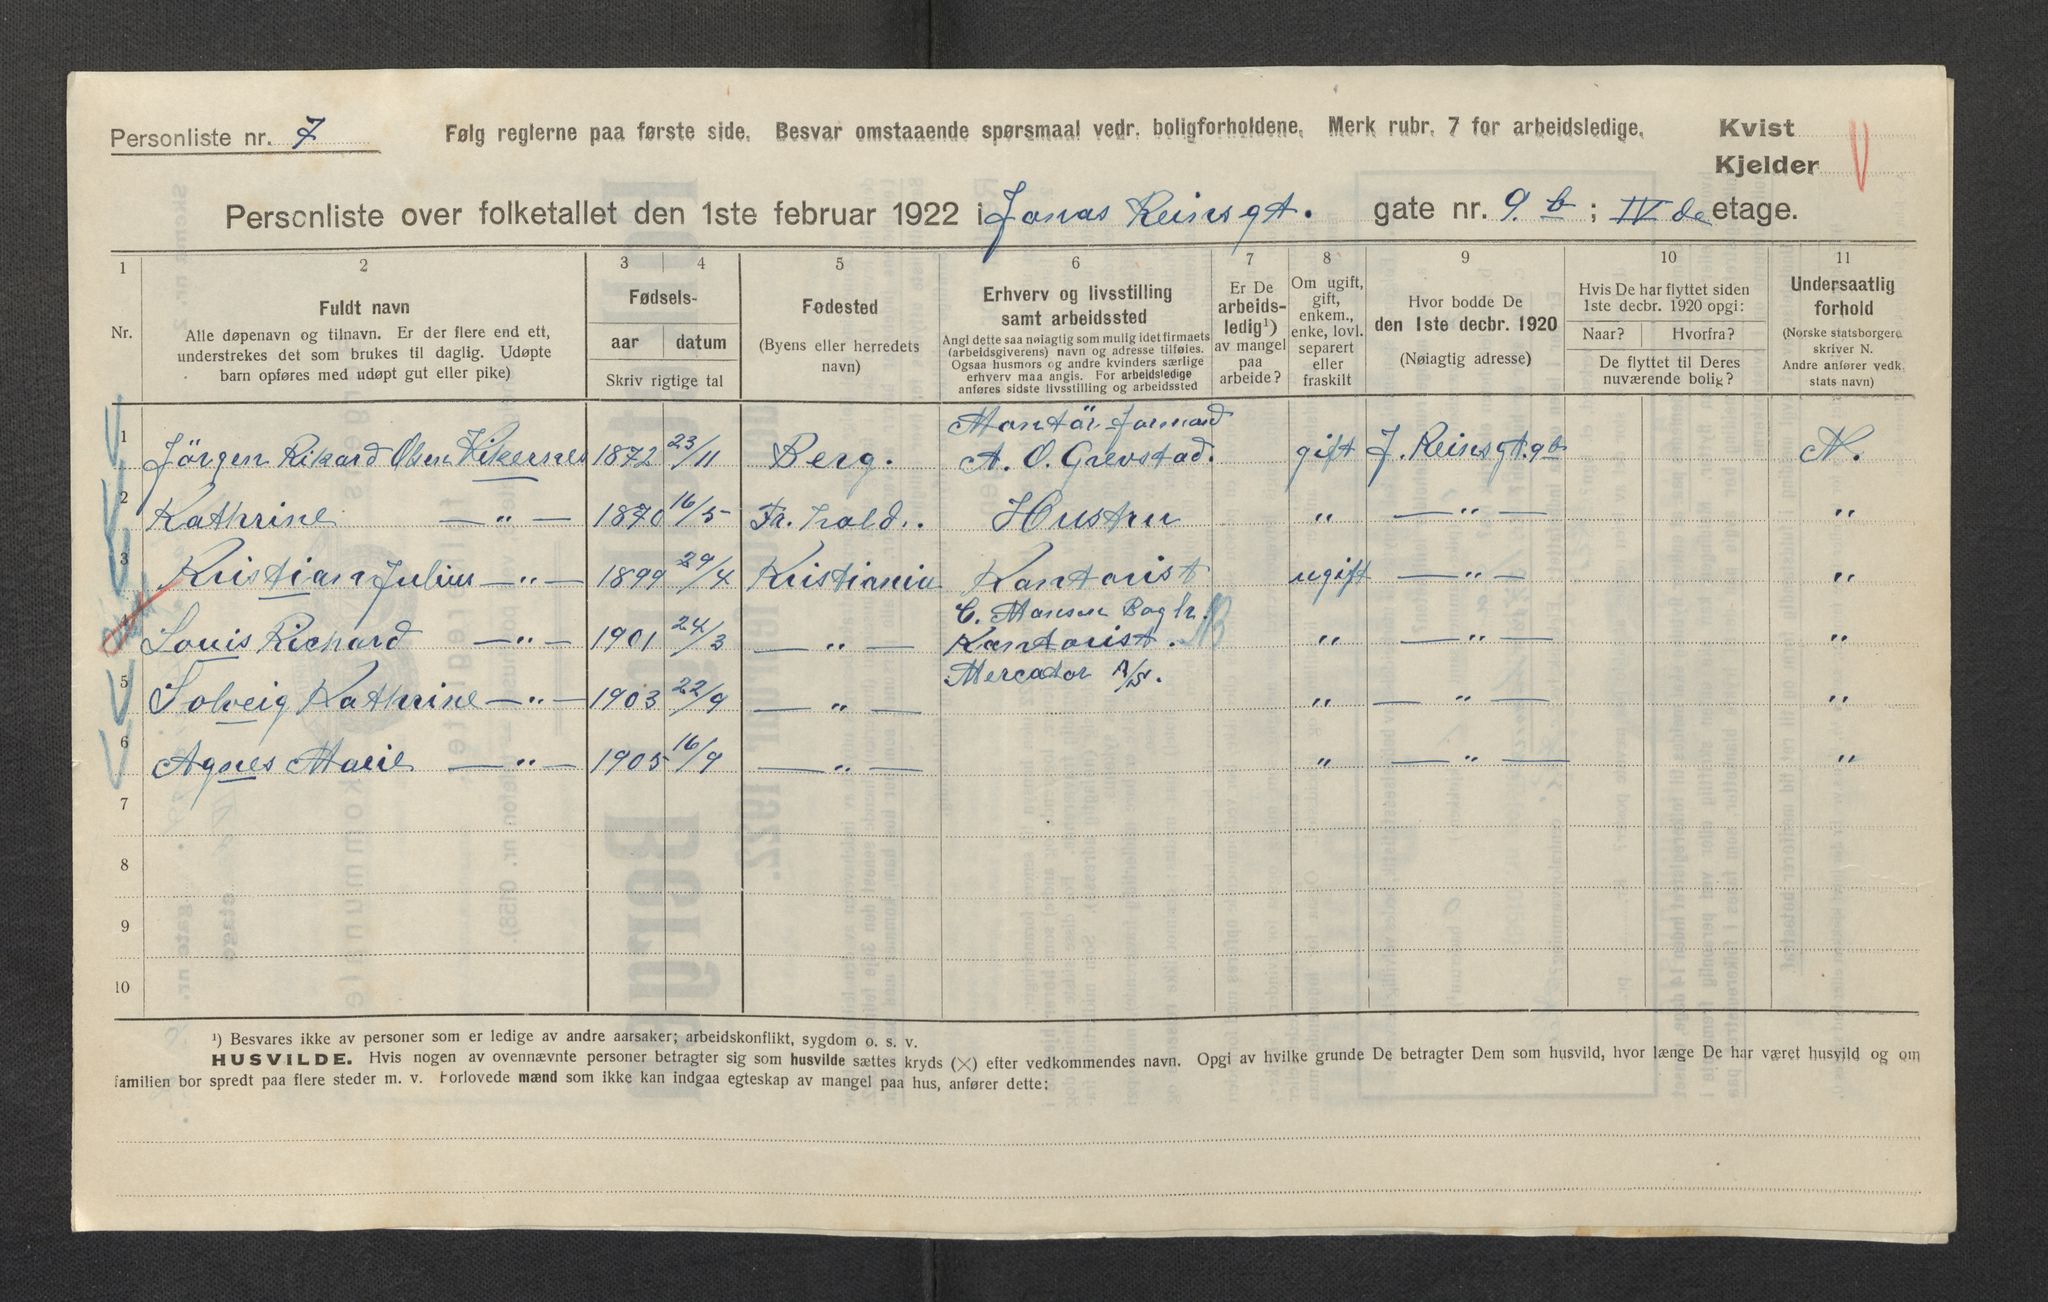 Personliste nr. 7
Følg reglerne paa første side. Besvar omstaaende spørsmaal vedr. boligforholdene. Merk rubr. 7 for arbeidsledige.
Kvist
Kjelder
Personliste over folketallet den 1ste februar 1922 i Jonas Reinsgt. gate nr. 9 b ; IV de etage.
1 2 3 4 5 6 7 8 9 10 11
Nr.
Fuldt navn
Alle døpenavn og tilnavn. Er der flere end ett,
understrekes det som brukes til daglig. Udøpte
barn opføres med udøpt gut eller pike)
Fødsels-
aar datum
Skriv rigtige tal
Fødested
(Byens eller herredets
navn)
Erhverv og livsstilling
samt arbeidssted
Angi dette saa nøiagtig som mulig idet firmaets
(arbeidsgiverens) navn og adresse tilføies.
Ogsaa husmors og andre kvinders særlige
erhverv maa angis. For arbeidsledige
anføres sidste livsstilling og arbeidssted
Er De
arbeids-
ledig¹)
av mangel
paa
arbeide?
Om ugift,
gift,
enkem.,
enke, lovl.
separert
eller
fraskilt
Hvor bodde De
den 1ste decbr. 1920
(Nøiagtig adresse)
Hvis De har flyttet siden
1ste decbr. 1920 opgi:
Naar? Hvorfra?
De flyttet til Deres
nuværende bolig?
Undersaatlig
forhold
(Norske statsborgere
skriver N.
Andre anfører vedk.
stats navn)
1 Jörgen Rikard Olsen Kikernes 1872 23/11 Berg. Montör formand A. O. Grevstad. gift J. Reinsgt. 9b N.
2 Kathrine — „ — 1870 16/5 Fr. hald. Hustru „ — „ — „
3 Kristian Julius — „ — 1899 29/4 Kristiania Kontorist ugift — „ — „
C. Hansen Bagh.
4 Louis Richard — „ — 1901 24/3 — „ — Kontorist. „ — „ — „
Mercador A/S.
5 Solveig Kathrine — „ — 1903 22/9 — „ — „ — „ — „
6 Agnes Marie — „ — 1905 16/9 — „ — „ — „ — „
7
8
9
10
¹) Besvares ikke av personer som er ledige av andre aarsaker; arbeidskonflikt, sygdom o. s. v.
HUSVILDE. Hvis nogen av ovennævnte personer betragter sig som husvilde sættes kryds (×) efter vedkommendes navn. Opgi av hvilke grunde De betragter Dem som husvild, hvor længe De har været husvild og om
familien bor spredt paa flere steder m. v. Forlovede mænd som ikke kan indgaa egteskap av mangel paa hus, anfører dette: